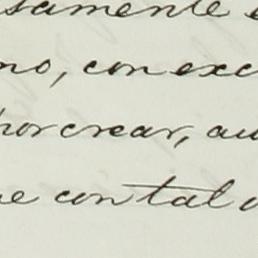 samente
no, con exc
por crear, au
ue con tal